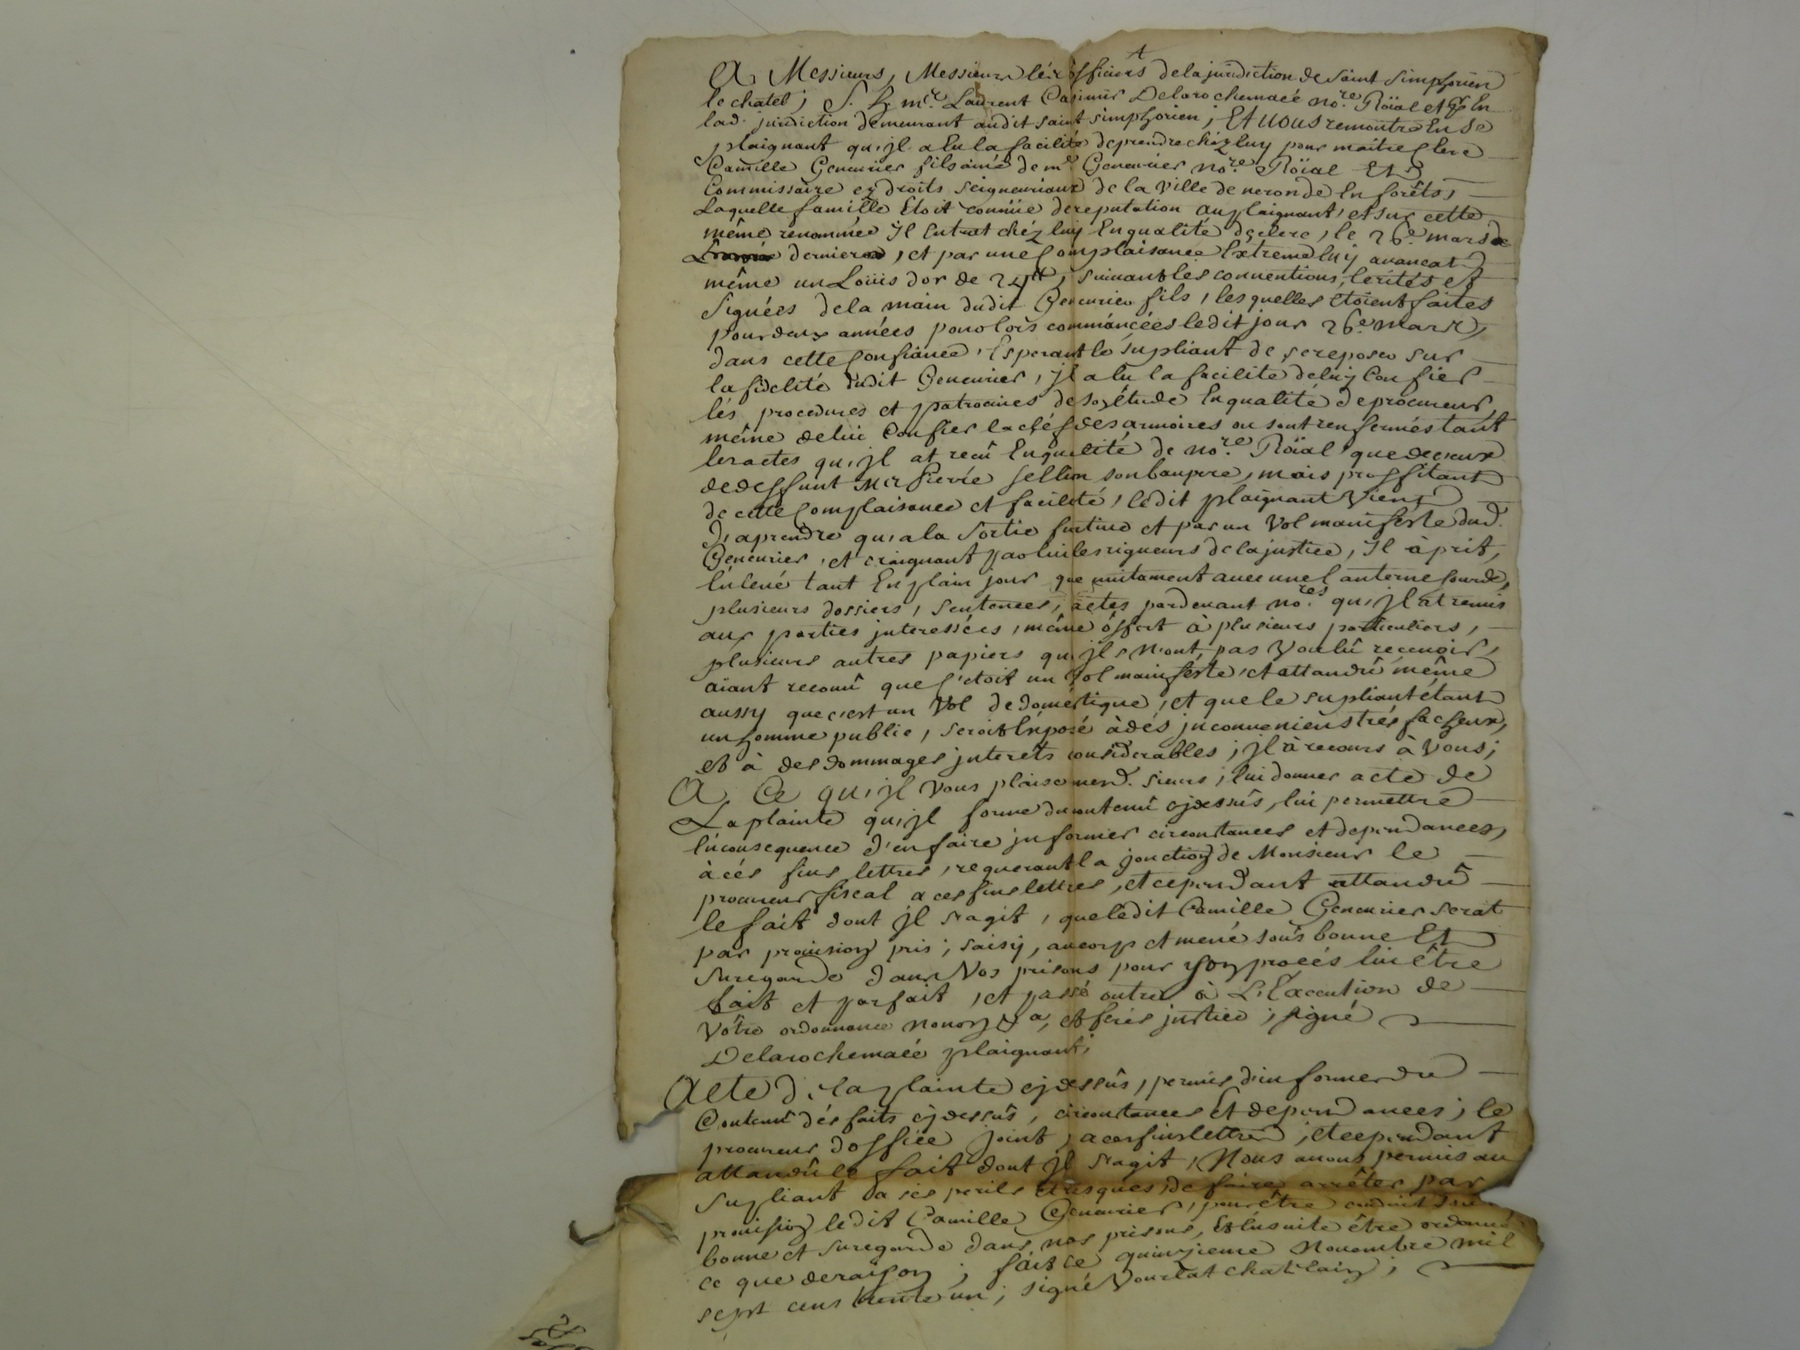 A
A Messieurs, Messieurs les officiers de la jurisdiction de saint simphorien
le chatel; S. h. mre. Laurent Casimir Delarochemacé nore. Roïal et pr. En
lad. jurisdiction demeurant audit saint simphorien; Et vous remontre En se
plaignant qu'jl a Eu la facilité de prendre chéz luy pour maitre Clerc
Camille Geneurier fils ainé de me. Geneurier nore. Roïal Et
Commissaire ez droits seigneuriaux de la ville de neronde En forêts,
Laquelle famille Etoit connüe de reputation au plaignant, et sur cette
même renommée jl Entrat chéz luy En qualité de clerc, le 26e. mars
dernier, et par une Complaisance Extreme luy avancat
même un Loüis d'or de 24tt, suivant les conventions, Ecrités et
signées de la main dudit Geneurier fils, lesquelles Etoient faites
pour deux années pour lors commancées ledit jour 26e. mars,
dans cette Confiance, Esperant le supliant de se reposer sur
la fidelité dudit Geneurier, jl a Eu la facilité de luy Confier
lés procedures et patrocines de son Etude En qualité de procureur,
même de lui Confier la cléf des armoires ou sont renfermés tant
les actes qu'jl at recû En qualité de nore. Roïal que de ceux
de deffunt Mre pierre sellion son beaupere, mais proffitant
de cette Complaisance et facilité, ledit plaignant Vient
D'aprendre qu'a la Sortie furtive et par un Vol manifeste dud.
Geneurier, et craignant par lui les rigueurs de la justice, jl à prit,
Enlevé tant En plain jour que nuitament avec une Lanterne sourde,
plusieurs dossiers, sentences, actes pardevant nores. qu'jl at remis
aux parties jnteressées, même offert à plusieurs particuliers,
plusieurs autres papiers qu'jls n'ont pas Voulû recevoir,
aiant reconû que C'étoit un Vol manifeste, et attandû même
aussy que c'est un Vol de domestique, et que le supliant étant
un homme public, seroit Exposé à dés jnconveniens trés facheux,
et à des dommages jnterets considerables; jl à recours à Vous;
A Ce qu'jl Vous plaise mesd. sieurs, lui donner acte de
La plainte qu'jl forme du contenû cy dessûs, lui permettre
En consequence d'en faire jnformer circonstances et dependances,
à cés fins lettres, requerant la jonction de Monsieur le
procureur fiscal a ces fins lettres, et cependant attandû
le fait dont jl s'agit, que ledit Camille Geneurier serat
par provision pris, saisy, au corps et mené sous bonne Et
sure garde dans Vos prisons pour son procés lui être
fait et parfait, et passé outre à L'Execution de
Vôtre ordonnance nonob. &a, et ferés justice, signé
Delarochemacé plaignant,
Acte de la plainte cy dessûs, permis d'informer du
Contenû dés faits cy dessûs, circonstances Et dependances; le
procureur d'office joint, a ces fins lettres, et cependant
attandû le fait dont jl s'agit, Nous avons permis au
supliant a sés perils et risques de faire arrêter par
provision ledit Camille Geneurier, pour être conduit sous
bonne et sure garde dans nos prisons, Et Ensuite être ordonné
ce que de raison; fait ce quinzieme Novembre mil
sept cens trente un; signé chatelain;